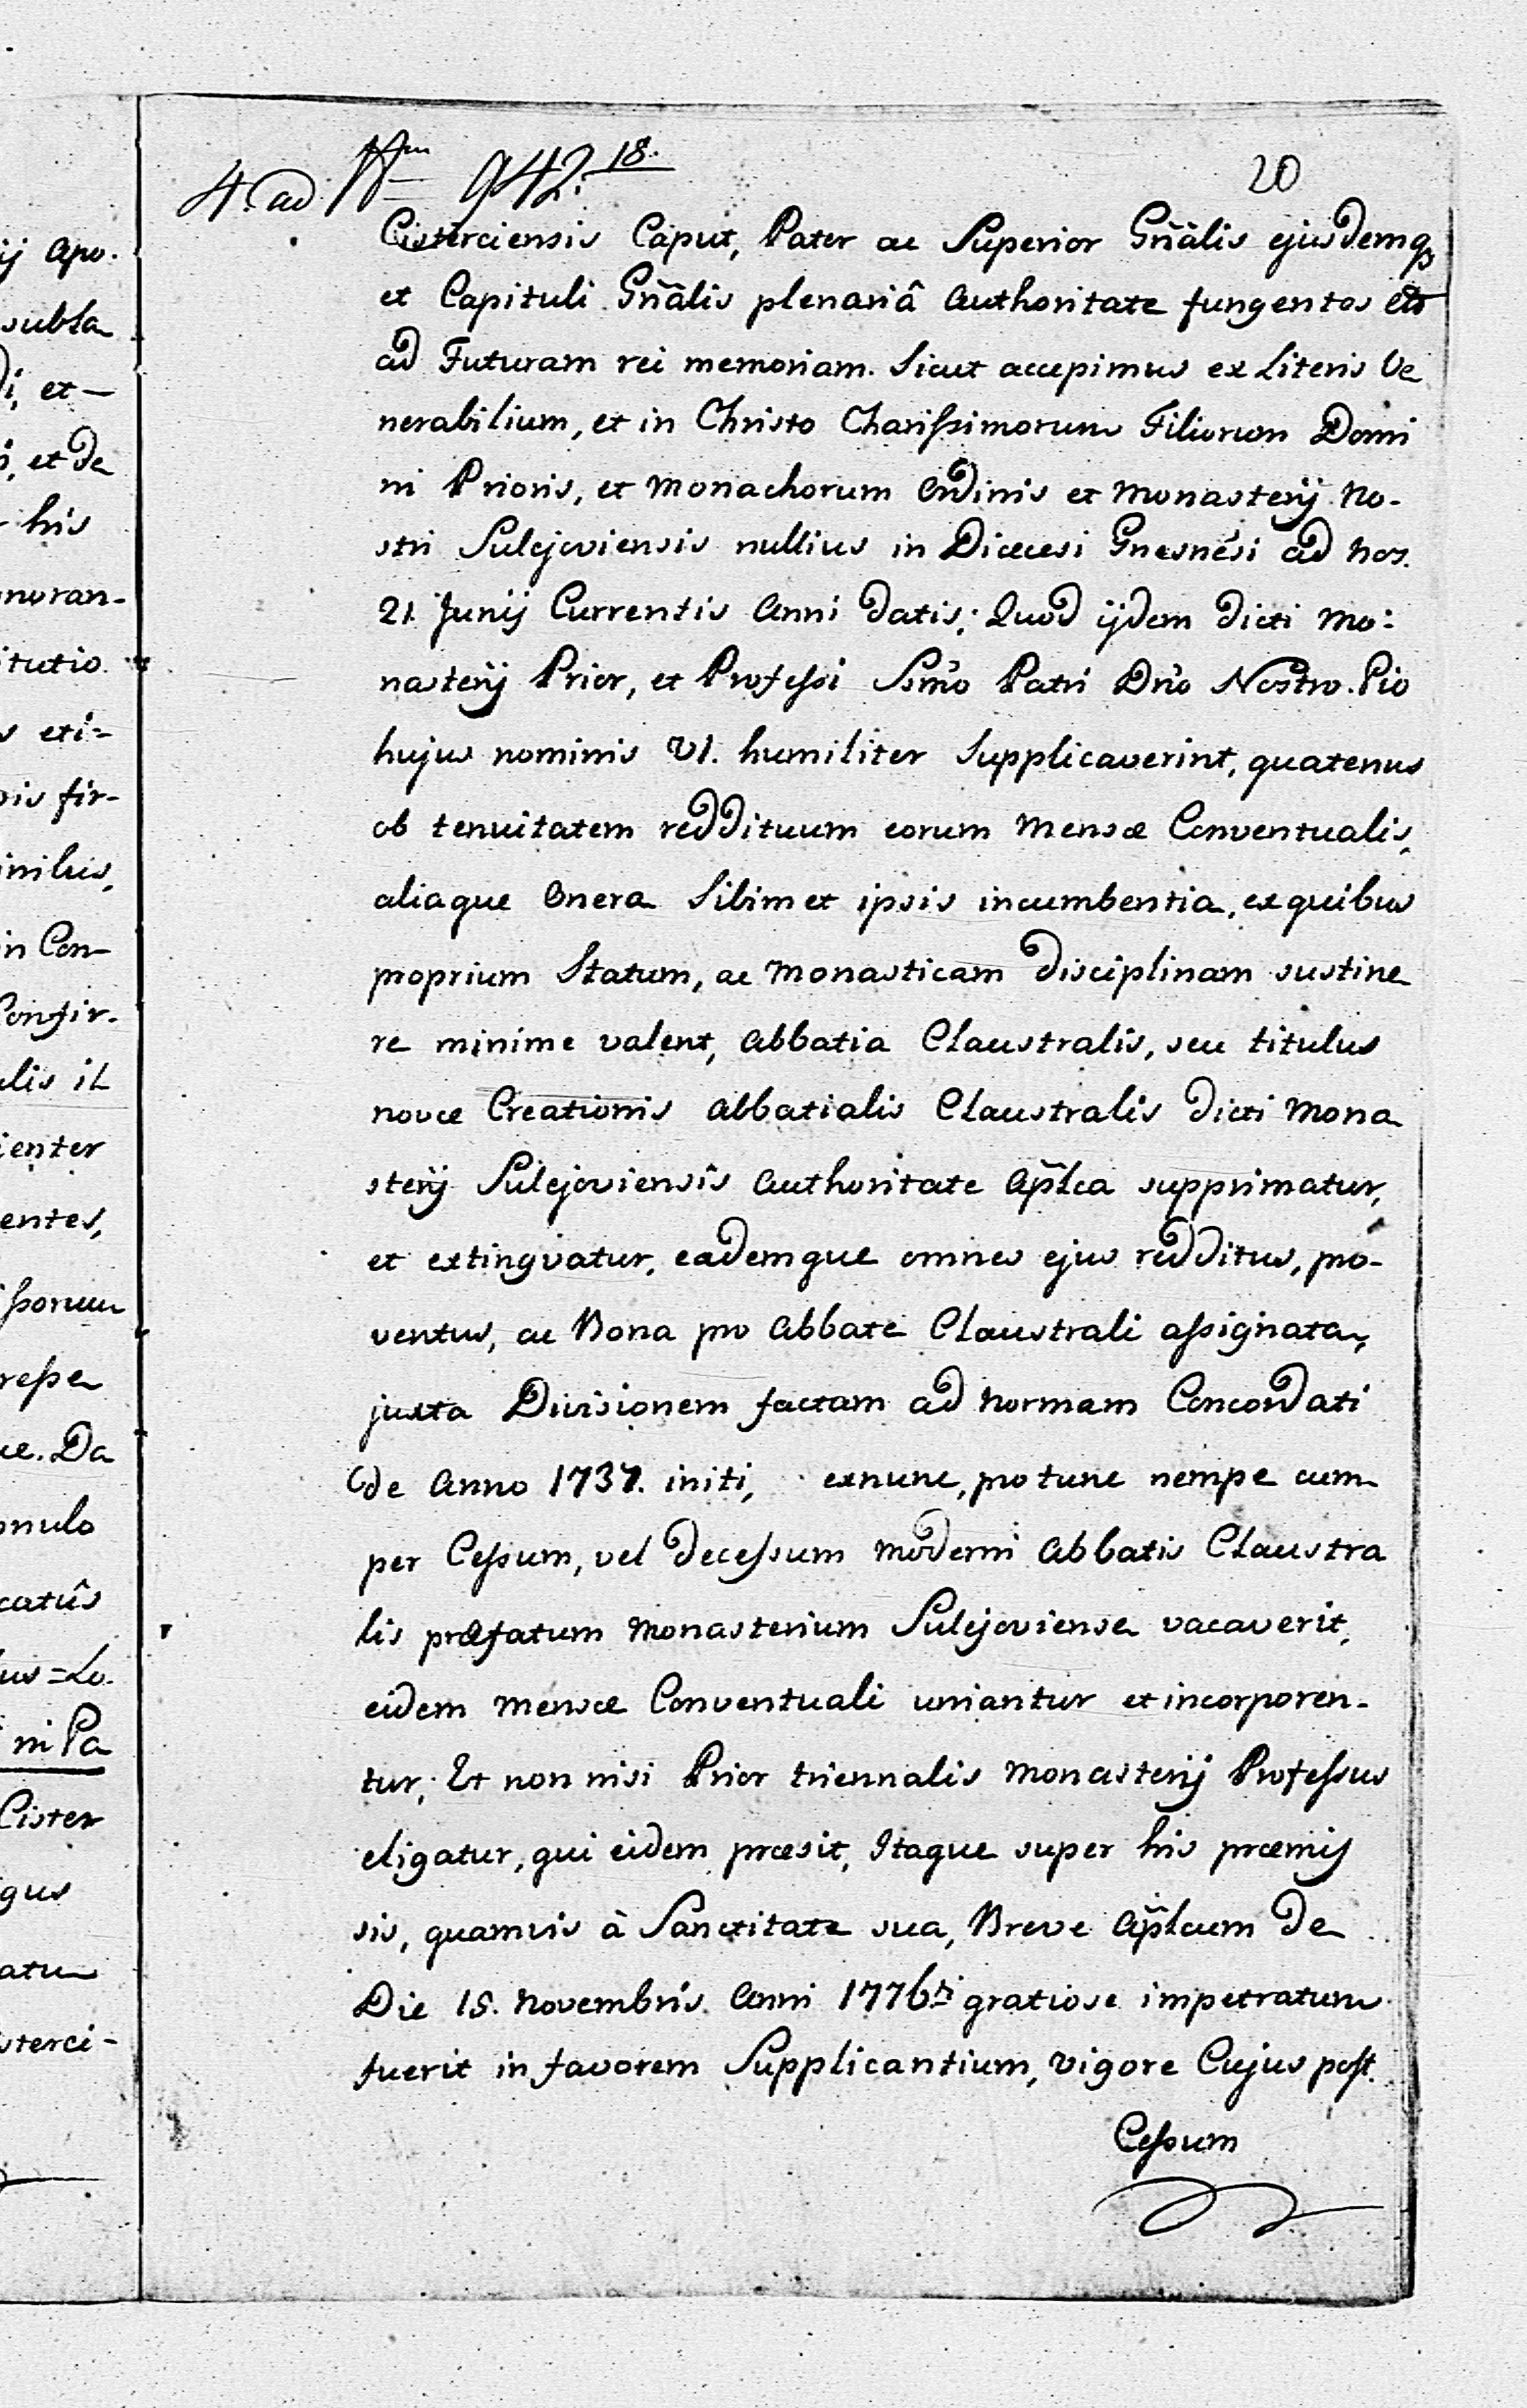 4. ad Nrm 942. 18.
20
Cisterciensis Caput, Pater ac Superior Gñalis ejusdemq
et Capituli Gñalis plenariâ Authoritate fungentes
ad Futuram rei memoriam. Sicut accepimus ex Literis Ve
nerabilium, et in Christo Charissimorum Filiorum Domi
ni Prioris, et Monachorum Ordinis et Monasterij No-
stri Sulejoviensis nullius in Diœcesi Gnesnẽsi ad Nos
21 Junij Currentis Anni datis; Quod ijdem dicti Mo-
nasterij Prior, et Professi Ssm̃o Patri Dñó Nostro Pio
hujus nominis VI. humiliter Supplicaverint, quatenus
ob tenuitatem reddituum eorum Mensæ Conventualis,
aliaque Onera Sibimet ipsis incumbentia, ex quibus
proprium Statum, ac Monasticam disciplinam sustine
re minime valent, Abbatia Claustralis, seu titulus
novæ Creationis Abbatialis Claustralis dicti Mona
sterij Sulejoviensis Authoritate Ap̃lca supprimatur,
et extingvatur, eademque omnes ejus redditus, pro-
ventus, ac Bona pro Abbate Claustrali assignata,
juxta Divisionem factam ad Normam Concordati
de Anno 1737. initi, exnunc, pro tunc nempe cum
per Cessum, vel decessum moderni Abbatis Claustra
lis præfatum Monasterium Sulejoviense vacaverit,
eidem Mensæ Conventuali uniantur et incorporen-
tur; Et non nisi Prior triennalis Monasterij Professus
eligatur, qui eidem præsit, Itaque super his præmis
sis, quamvis à Sanctitate sua, Breve Ap̃lcum de
Die 18. Novembris Anni 1776ti gratiose impetratum
fuerit in favorem Supplicantium, vigore Cujus post
Cessum
ij Apo.
subla
di, et —
et de
his
noran-
itutio
s eti=
fir-
in Con-
Confir-
ienter
entes,
Da
catûs
ni Pa
Cister
gus
sterci-